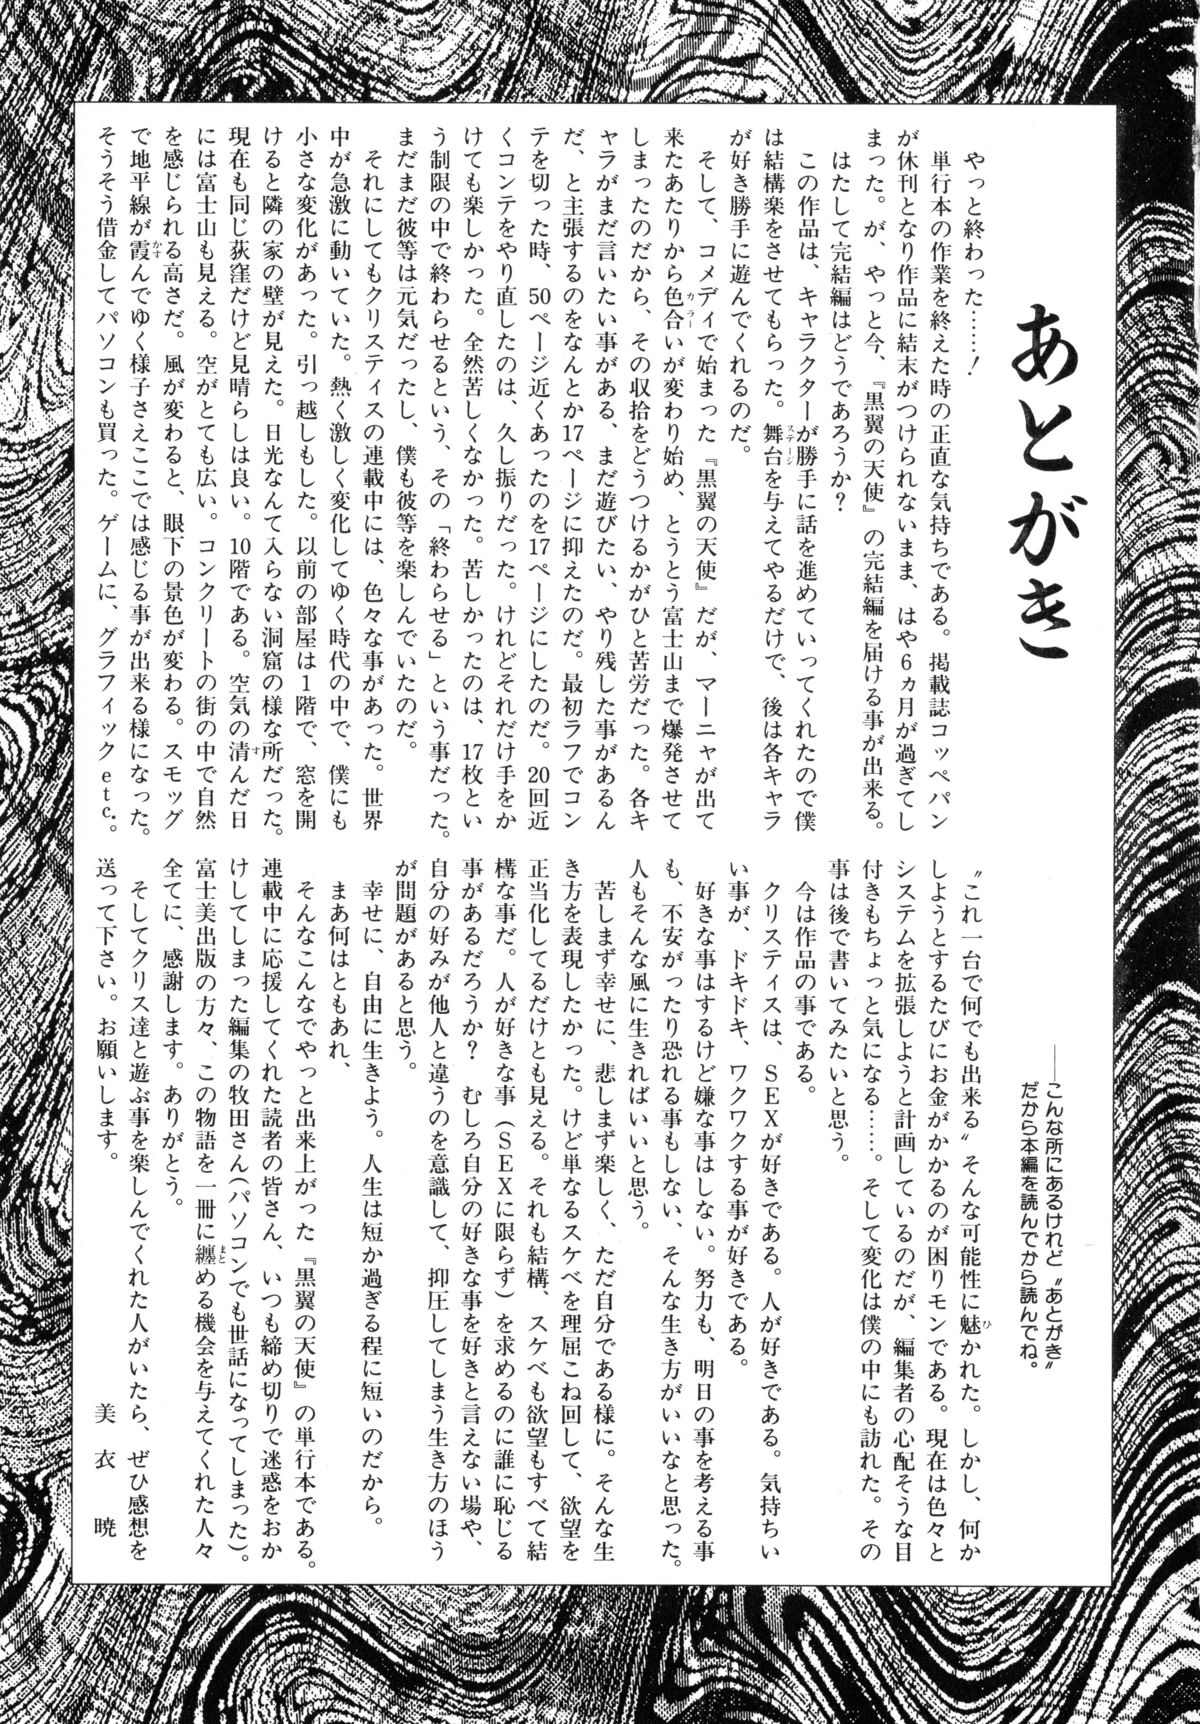 あとがき
──こんな所にあるけれど〝あとがき〟
だから本編を読んでから読んでね。
やっと終わった……！
単行本の作業を終えた時の正直な気持ちである。掲載誌コッペパン
が休刊となり作品に結末がつけられないまま、はや６ヵ月が過ぎてし
まった。が、やっと今、『黒翼の天使』の完結編を届ける事が出来る。
はたして完結編はどうであろうか？
この作品は、キャラクターが勝手に話を進めていってくれたので僕
は結構楽をさせてもらった。舞台ステージを与えてやるだけで、後は各キャラ
が好き勝手に遊んでくれるのだ。
そして、コメディで始まった『黒翼の天使』だが、マーニャが出て
来たあたりから色合カラーいが変わり始め、とうとう富士山まで爆発させて
しまったのだから、その収拾をどうつけるかがひと苦労だった。各キ
ャラがまだ言いたい事がある、まだ遊びたい、やり残した事があるん
だ、と主張するのをなんとか17ページに抑えたのだ。最初ラフでコン
テを切った時、50ページ近くあったのを17ページにしたのだ。20回近
くコンテをやり直したのは、久し振りだった。けれどそれだけ手をか
けても楽しかった。全然苦しくなかった。苦しかったのは、17枚とい
う制限の中で終わらせるという、その「終わらせる」という事だった。
まだまだ彼等は元気だったし、僕も彼等を楽しんでいたのだ。
それにしてもクリスティスの連載中には、色々な事があった。世界
中が急激に動いていた。熱く激しく変化してゆく時代の中で、僕にも
小さな変化があった。引っ越しもした。以前の部屋は１階で、窓を開
けると隣の家の壁が見えた。日光なんて入らない洞窟の様な所だった。
現在も同じ荻窪だけど見晴らしは良い。10階である。空気の清すんだ日
には富士山も見える。空がとても広い。コンクリートの街の中で自然
を感じられる高さだ。風が変わると、眼下の景色が変わる。スモッグ
で地平線が霞かすんでゆく様子さえここでは感じる事が出来る様になった。
そうそう借金してパソコンも買った。ゲームに、グラフィックｅｔｃ.。
〝これ一台で何でも出来る〟そんな可能性に魅ひかれた。しかし、何か
しようとするたびにお金がかかるのが困りモンである。現在は色々と
システムを拡張しようと計画しているのだが、編集者の心配そうな目
付きもちょっと気になる……。そして変化は僕の中にも訪れた。その
事は後で書いてみたいと思う。
今は作品の事である。
クリスティスは、ＳＥＸが好きである。人が好きである。気持ちい
い事が、ドキドキ、ワクワクする事が好きである。
好きな事はするけど嫌な事はしない。努力も、明日の事を考える事
も、不安がったり恐れる事もしない、そんな生き方がいいなと思った。
人もそんな風に生きればいいと思う。
苦しまず幸せに、悲しまず楽しく、ただ自分である様に。そんな生
き方を表現したかった。けど単なるスケベを理屈こね回して、欲望を
正当化してるだけとも見える。それも結構、スケベも欲望もすべて結
構な事だ。人が好きな事（ＳＥＸに限らず）を求めるのに誰に恥じる
事があるだろうか？　むしろ自分の好きな事を好きと言えない場や、
自分の好みが他人と違うのを意識して、抑圧してしまう生き方のほう
が問題があると思う。
幸せに、自由に生きよう。人生は短か過ぎる程に短いのだから。
まあ何はともあれ、
そんなこんなでやっと出来上がった『黒翼の天使』の単行本である。
連載中に応援してくれた読者の皆さん、いつも締め切りで迷惑をおか
けしてしまった編集の牧田さん（パソコンでも世話になってしまった）。
富士美出版の方々、この物語を一冊に纏まとめる機会を与えてくれた人々
全てに、感謝します。ありがとう。
そしてクリス達と遊ぶ事を楽しんでくれた人がいたら、ぜひ感想を
送って下さい。お願いします。
美衣　暁